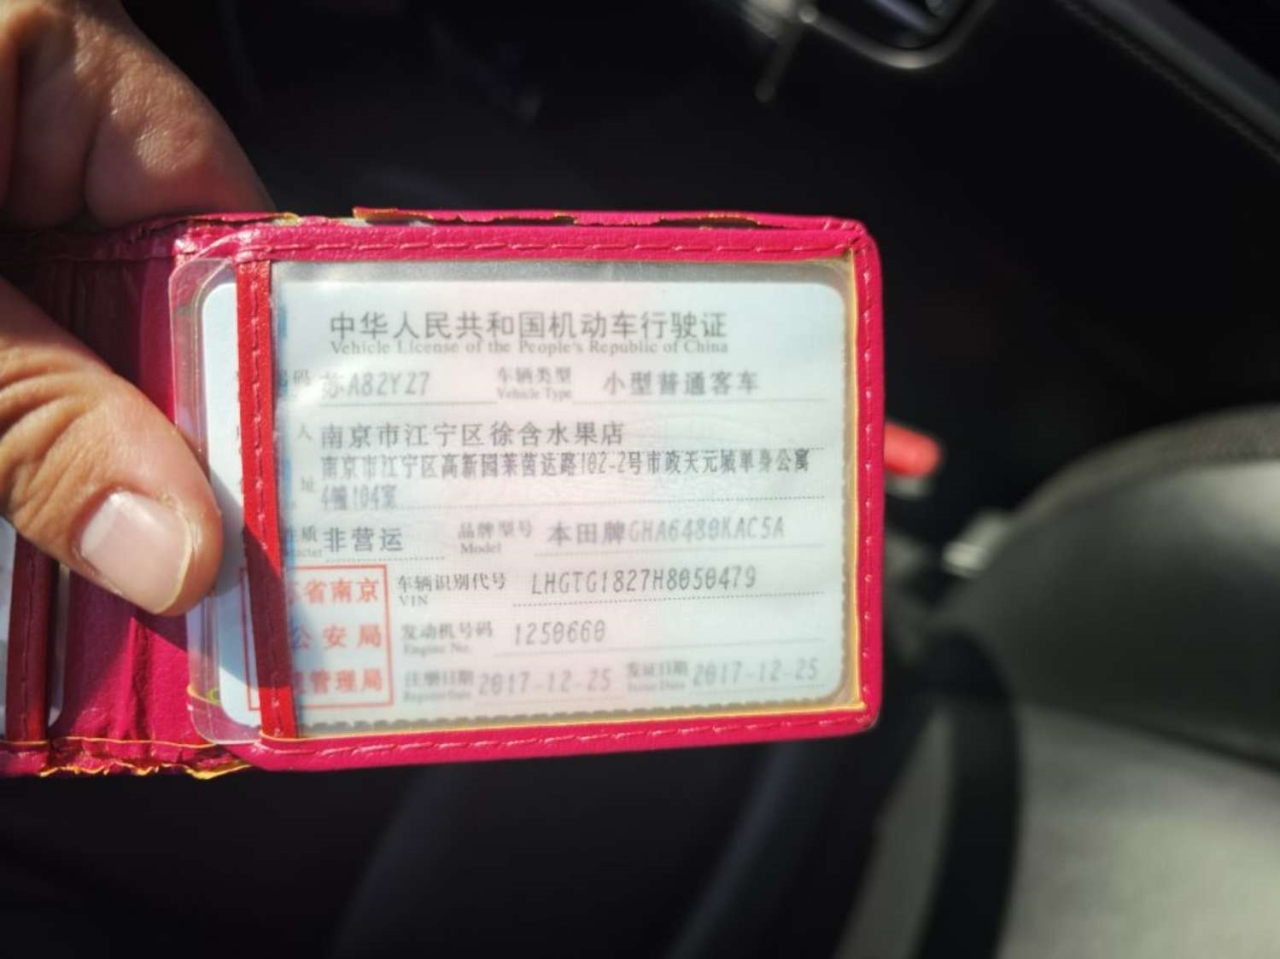 中华人民共和国机动车行驶证
Vehicle License of the People's Republic of China
号码 苏A82YZ7 车辆类型 Vehicle Type 小型普通客车
人 南京市江宁区徐含水果店
址 南京市江宁区高新园莱茵达路102-2号市政天元城单身公寓
4幢104室
性质 非营运 品牌型号 Model 本田牌GHA6480KAC5A
省南京 车辆识别代号 VIN LHGTG1827H8050479
公安局 发动机号码 Engine No. 1250660
管理局 注册日期 Register Date 2017-12-25 发证日期 Issue Date 2017-12-25